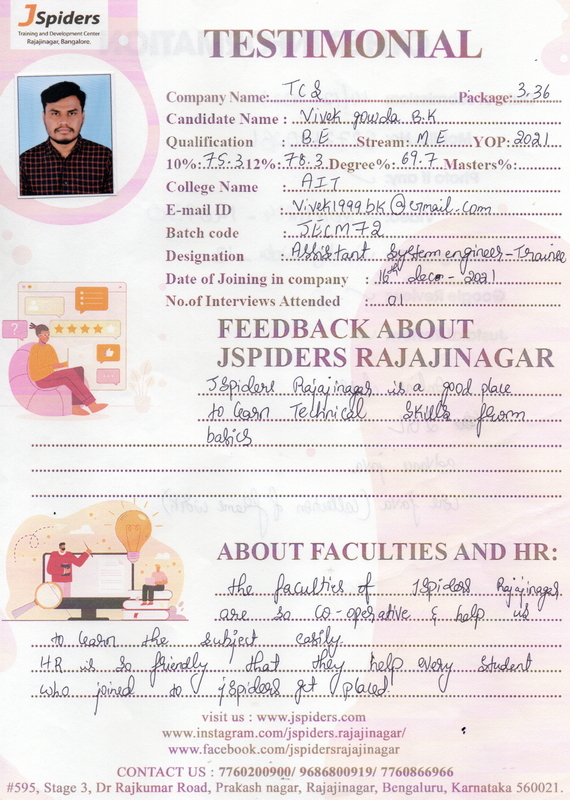 JSpiders
Training and Development Center
Rajajinagar, Bangalore.
TESTIMONIAL
Company Name: TCS Package: 3.36
Candidate Name : Vivek gowda B.K
Qualification : B.E Stream: M E YOP: 2021
10%: 75.3 12%: 78.3 Degree%: 69.7 Masters%:
College Name : AIT
E-mail ID : Vivek1999bk@Gmail.com
Batch code : JECM72
Designation : Assistant System engineer-Trainee
Date of Joining in company : 16th dece - 2021
No.of Interviews Attended : 01
FEEDBACK ABOUT
JSPIDERS RAJAJINAGAR
JSpiders Rajajinagar is a good place
to learn Technical Skills from
basics
ABOUT FACULTIES AND HR:
the faculties of JSpiders Rajajinagar
are so co-operative & help us
to learn the subject easily.
H.R is so friendly that they help every student
who joined to jspiders get placed.
visit us : www.jspiders.com
www.instagram.com/jspiders.rajajinagar/
www.facebook.com/jspidersrajajinagar
CONTACT US : 7760200900/ 9686800919/ 7760866966
#595, Stage 3, Dr Rajkumar Road, Prakash nagar, Rajajinagar, Bengaluru, Karnataka 560021.